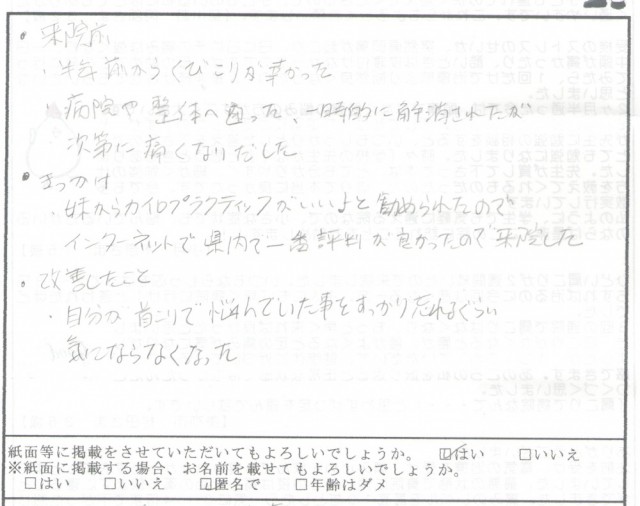 ・来院前
・半年前からくびこりが辛かった
・病院や整体へ通った、一時的に解消されたが
次第に痛くなりだした
・きっかけ
・妹からカイロプラクティックがいいよと勧められたので
インターネットで県内で一番評判が良かったので来院した
・改善したこと
・自分が首こりで悩んでいた事をすっかり忘れるぐらい
気にならなくなった
紙面等に掲載をさせていただいてもよろしいでしょうか。 ☑はい □いいえ
※紙面に掲載する場合、お名前を載せてもよろしいでしょうか。
□はい □いいえ ☑匿名で □年齢はダメ